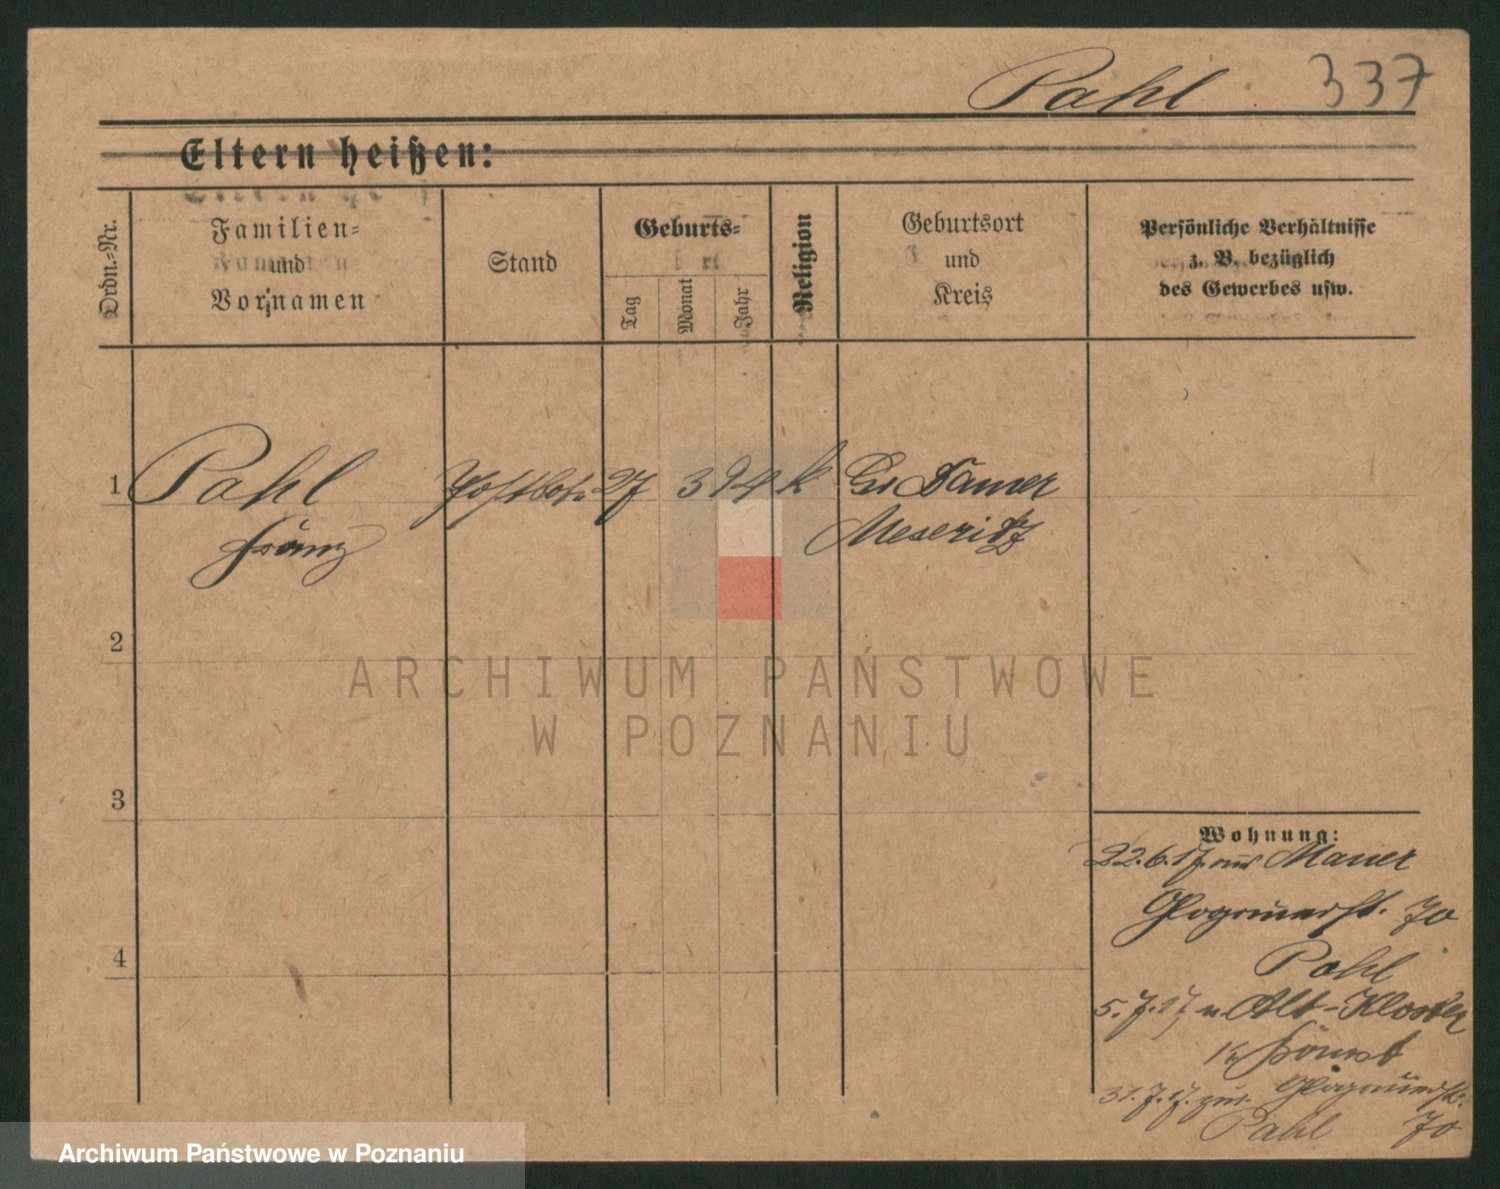 Pahl 337
Eltern heißen:
Ordn.-Nr.
Familien-
und
Vornamen
Stand
Geburts-
Tag
Monat
Jahr
Religion
Geburtsort
und
Kreis
Persönliche Verhältnisse
z. B. bezüglich
des Gewerbes usw.
1 Pahl Postbote 27 3 94 k Gr Damer
Franz Meseritz
2
3
4
Wohnung:
22.6.17. aus Mauer
Glogauerst. 70
Pahl
5.7.17 n. Alt-Kloster
Kr Bomst
31.7.17. zur. Glogauerst.
Pahl 70
ARCHIWUM PAŃSTWOWE
W POZNANIU
Archiwum Państwowe w Poznaniu